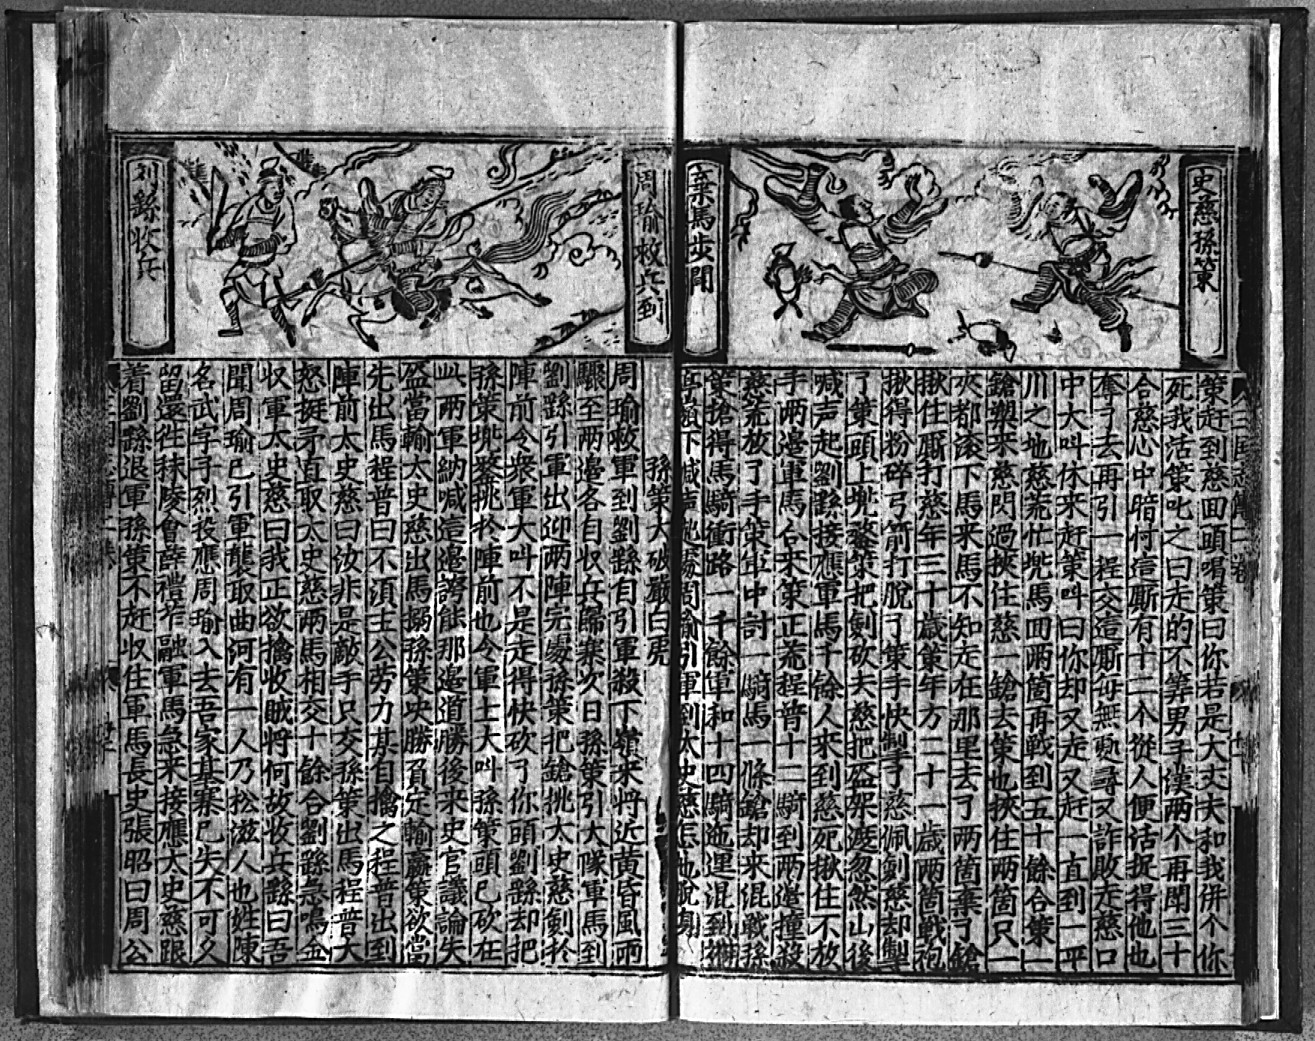 史慈孫策
棄馬步鬥
策赶到慈面頭喝策曰你若是大丈夫和我併个你
死我活策叱之曰走的不筭男子漢兩个再鬥三十
合慈心中暗忖這厮有十二个從人便活捉得他也
奪了去再引一程交這厮每無尋又詐敗走慈口
中大叫休來赶策叫曰你却又走又赶一直到一平
川之地慈荒忙兠馬回兩箇再戰到五十餘合策一
鎗槊來慈閃過挾住慈一鎗去策也挾住兩箇只一
夾都滚下馬来馬不知走在那里去了兩箇棄了鎗
揪住厮打慈年三十歲策年方二十一歲兩箇戰袍
揪得粉碎弓箭打脫了策手快掣了慈佩劍慈却掣
了策頭上兠鍪策把劍砍夫慈把盔架遮忽然山後
喊声起劉繇接應軍馬千餘人來到慈死揪住不放
手兩邊軍馬合來策正荒程普十二騎到兩邊撞殺
慈荒放了手策軍中討一騎馬一條鎗却来混戰孫
策搶得馬騎衝路一千餘軍和十四騎迤逗混到神
嶺下喊声起處周瑜引軍到太史慈怎地脫身
周瑜救兵到
刘繇收兵
孫策大破嚴白虎
周瑜救軍到劉繇自引軍殺下嶺来將近黄昏風雨
驟至兩邊各自收兵歸寨次日孫策引大隊軍馬到
劉繇引軍出迎兩陣完處孫策把鎗挑太史慈劍於
陣前令衆軍大叫不是走得快砍了你頭劉繇却把
孫策兠鍪挑於陣前也令軍士大叫孫策頭已砍在
此兩軍納喊這邊誇能那邊道勝後來史官議論失
盔當輸太史慈出馬搦孫策决勝負定輸贏策欲當
先出馬程普曰不須主公劳力某自擒之程普出到
陣前太史慈曰汝非是敵手只交孫策出馬程普大
怒挺矛直取太史慈兩馬相交十餘合劉繇急鳴金
収軍太史慈曰我正欲擒收賊將何故收兵繇曰吾
聞周瑜已引軍襲取曲河有一人乃松滋人也姓陳
名武字子烈投應周瑜入去吾家基寨已失不可久
留還徃秣陵會薛禮笮融軍馬急来接應太史慈跟
着劉繇退軍孫策不赶收住軍馬長史張昭曰周公